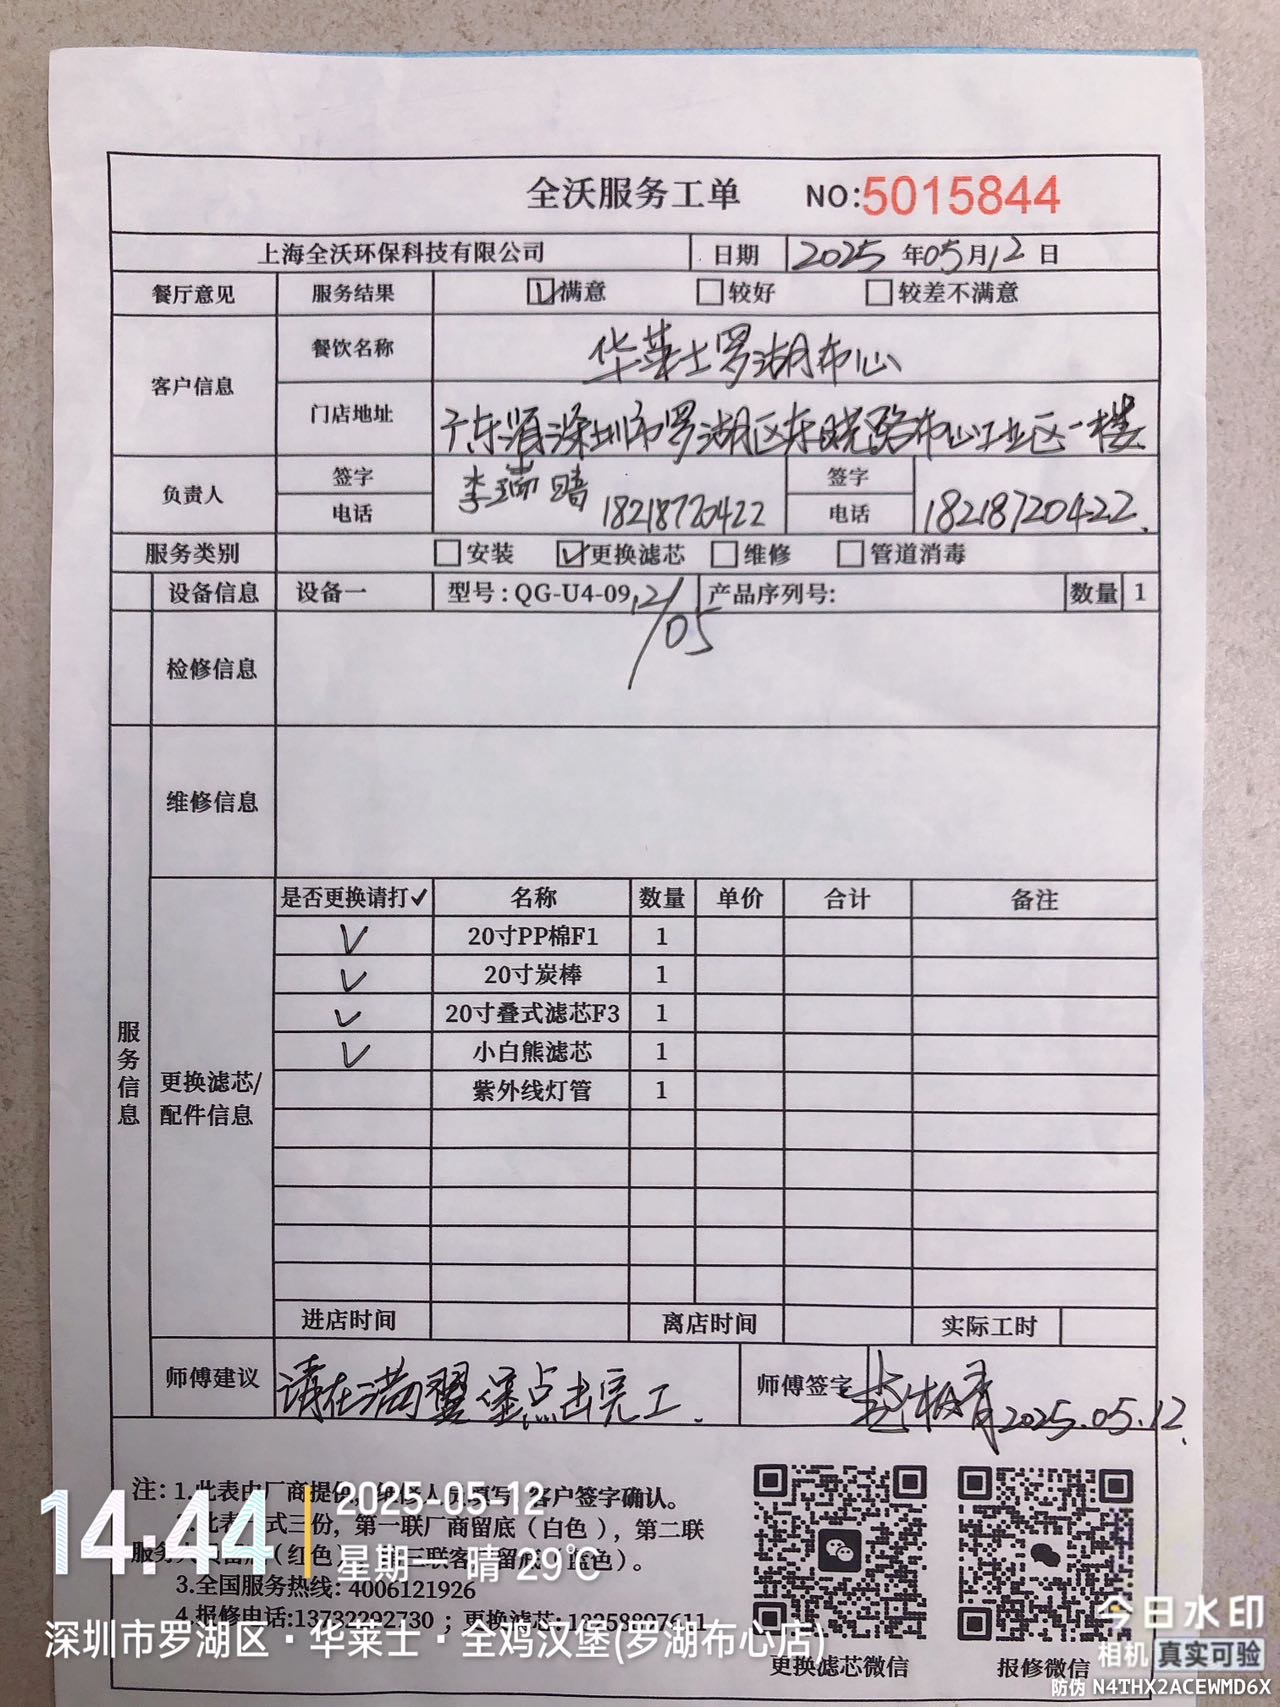 全沃服务工单 NO:5015844
上海全沃环保科技有限公司 日期 2025 年05月12日
餐厅意见 服务结果 ☑满意 □较好 □较差不满意
客户信息 餐饮名称 华莱士罗湖布心
门店地址 广东省深圳市罗湖区东晓路布心工业区一楼
负责人 签字 李 晴 签字
电话 18218720422 电话 18218720422.
服务类别 □安装 ☑更换滤芯 □维修 □管道消毒
设备信息 设备一 型号:QG-U4-09 产品序列号: 数量 1
12/05
检修信息
维修信息
服务信息
更换滤芯/
配件信息
是否更换请打✓ 名称 数量 单价 合计 备注
✓ 20寸PP棉F1 1
✓ 20寸炭棒 1
✓ 20寸叠式滤芯F3 1
✓ 小白熊滤芯 1
紫外线灯管 1
进店时间 离店时间 实际工时
师傅建议 请在满 点击完工. 师傅签字 2025.05.12.
注: 1.此表由厂商提供, 填写 客户签字确认。
式三份，第一联厂商留底（白色），第二联
服务 （红色） 三联客 留底 蓝色）。
3.全国服务热线: 4006121926
4.报修电话:13732292730 ; 更换滤芯:
更换滤芯微信 报修微信
14:44 2025-05-12
星期一 晴 29℃
深圳市罗湖区·华莱士·全鸡汉堡(罗湖布心店)
今日水印
相机 真实可验
防伪 N4THX2ACEWMD6X